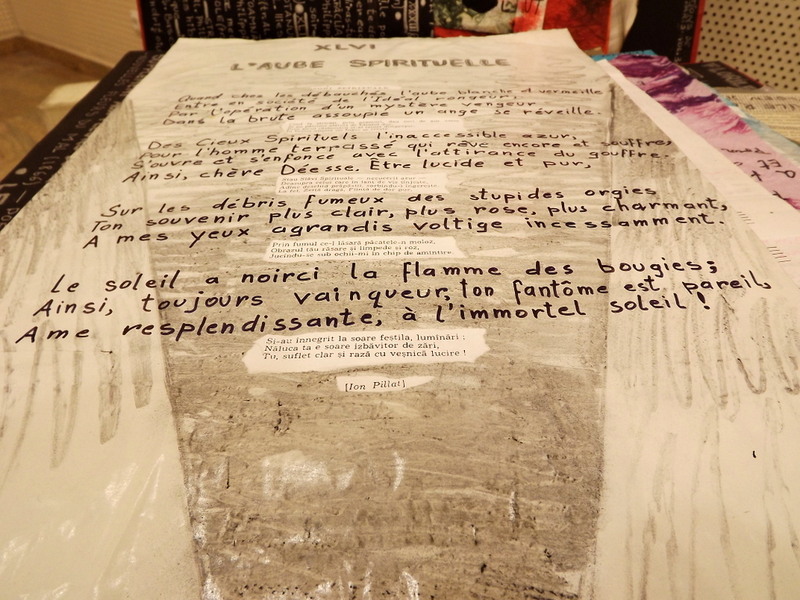 XLVI
L'AUBE SPIRITUELLE
Quand chez les débauchés l'aube blanche et vermeille
Entre en société de l'Idéal rongeur,
Par l'opération d'un mystère vengeur
Dans la brute assoupie un ange se réveille.
Des Cieux Spirituels l'inaccessible azur,
Pour l'homme terrassé qui rêve encore et souffre,
S'ouvre et s'enfonce avec l'attirance du gouffre.
Ainsi, chère Déesse, Être lucide et pur,
Sur les débris fumeux des stupides orgies
Ton souvenir plus clair, plus rose, plus charmant,
A mes yeux agrandis voltige incessamment.
Prin fumul ce-i lăsară păcatele-n moloz,
Obrazul tău răsare și limpede și roz,
Jucîndu-se sub ochii-mi în chip de amintire.
Le soleil a noirci la flamme des bougies;
Ainsi, toujours vainqueur, ton fantôme est pareil,
Ame resplendissante, à l'immortel soleil!
Și-au înnegrit la soare feștila, lumînări ;
Năluca ta e soare izbăvitor de zări,
Tu, suflet clar și rază cu veșnică lucire !
[Ion Pillat]